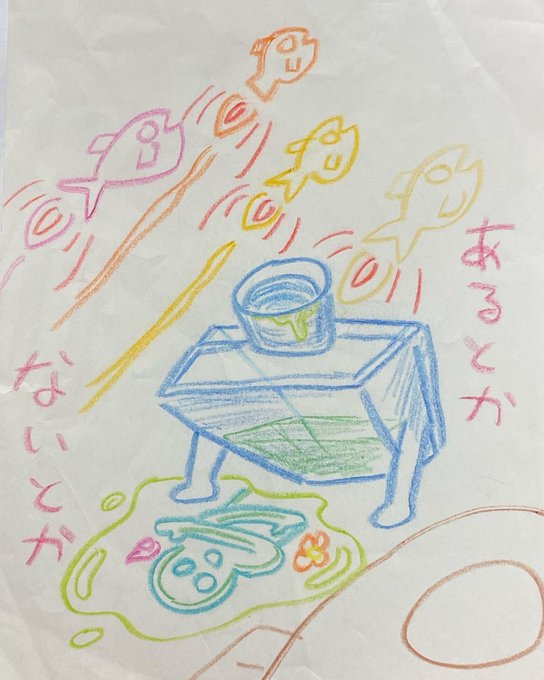 あるとか
ないとか